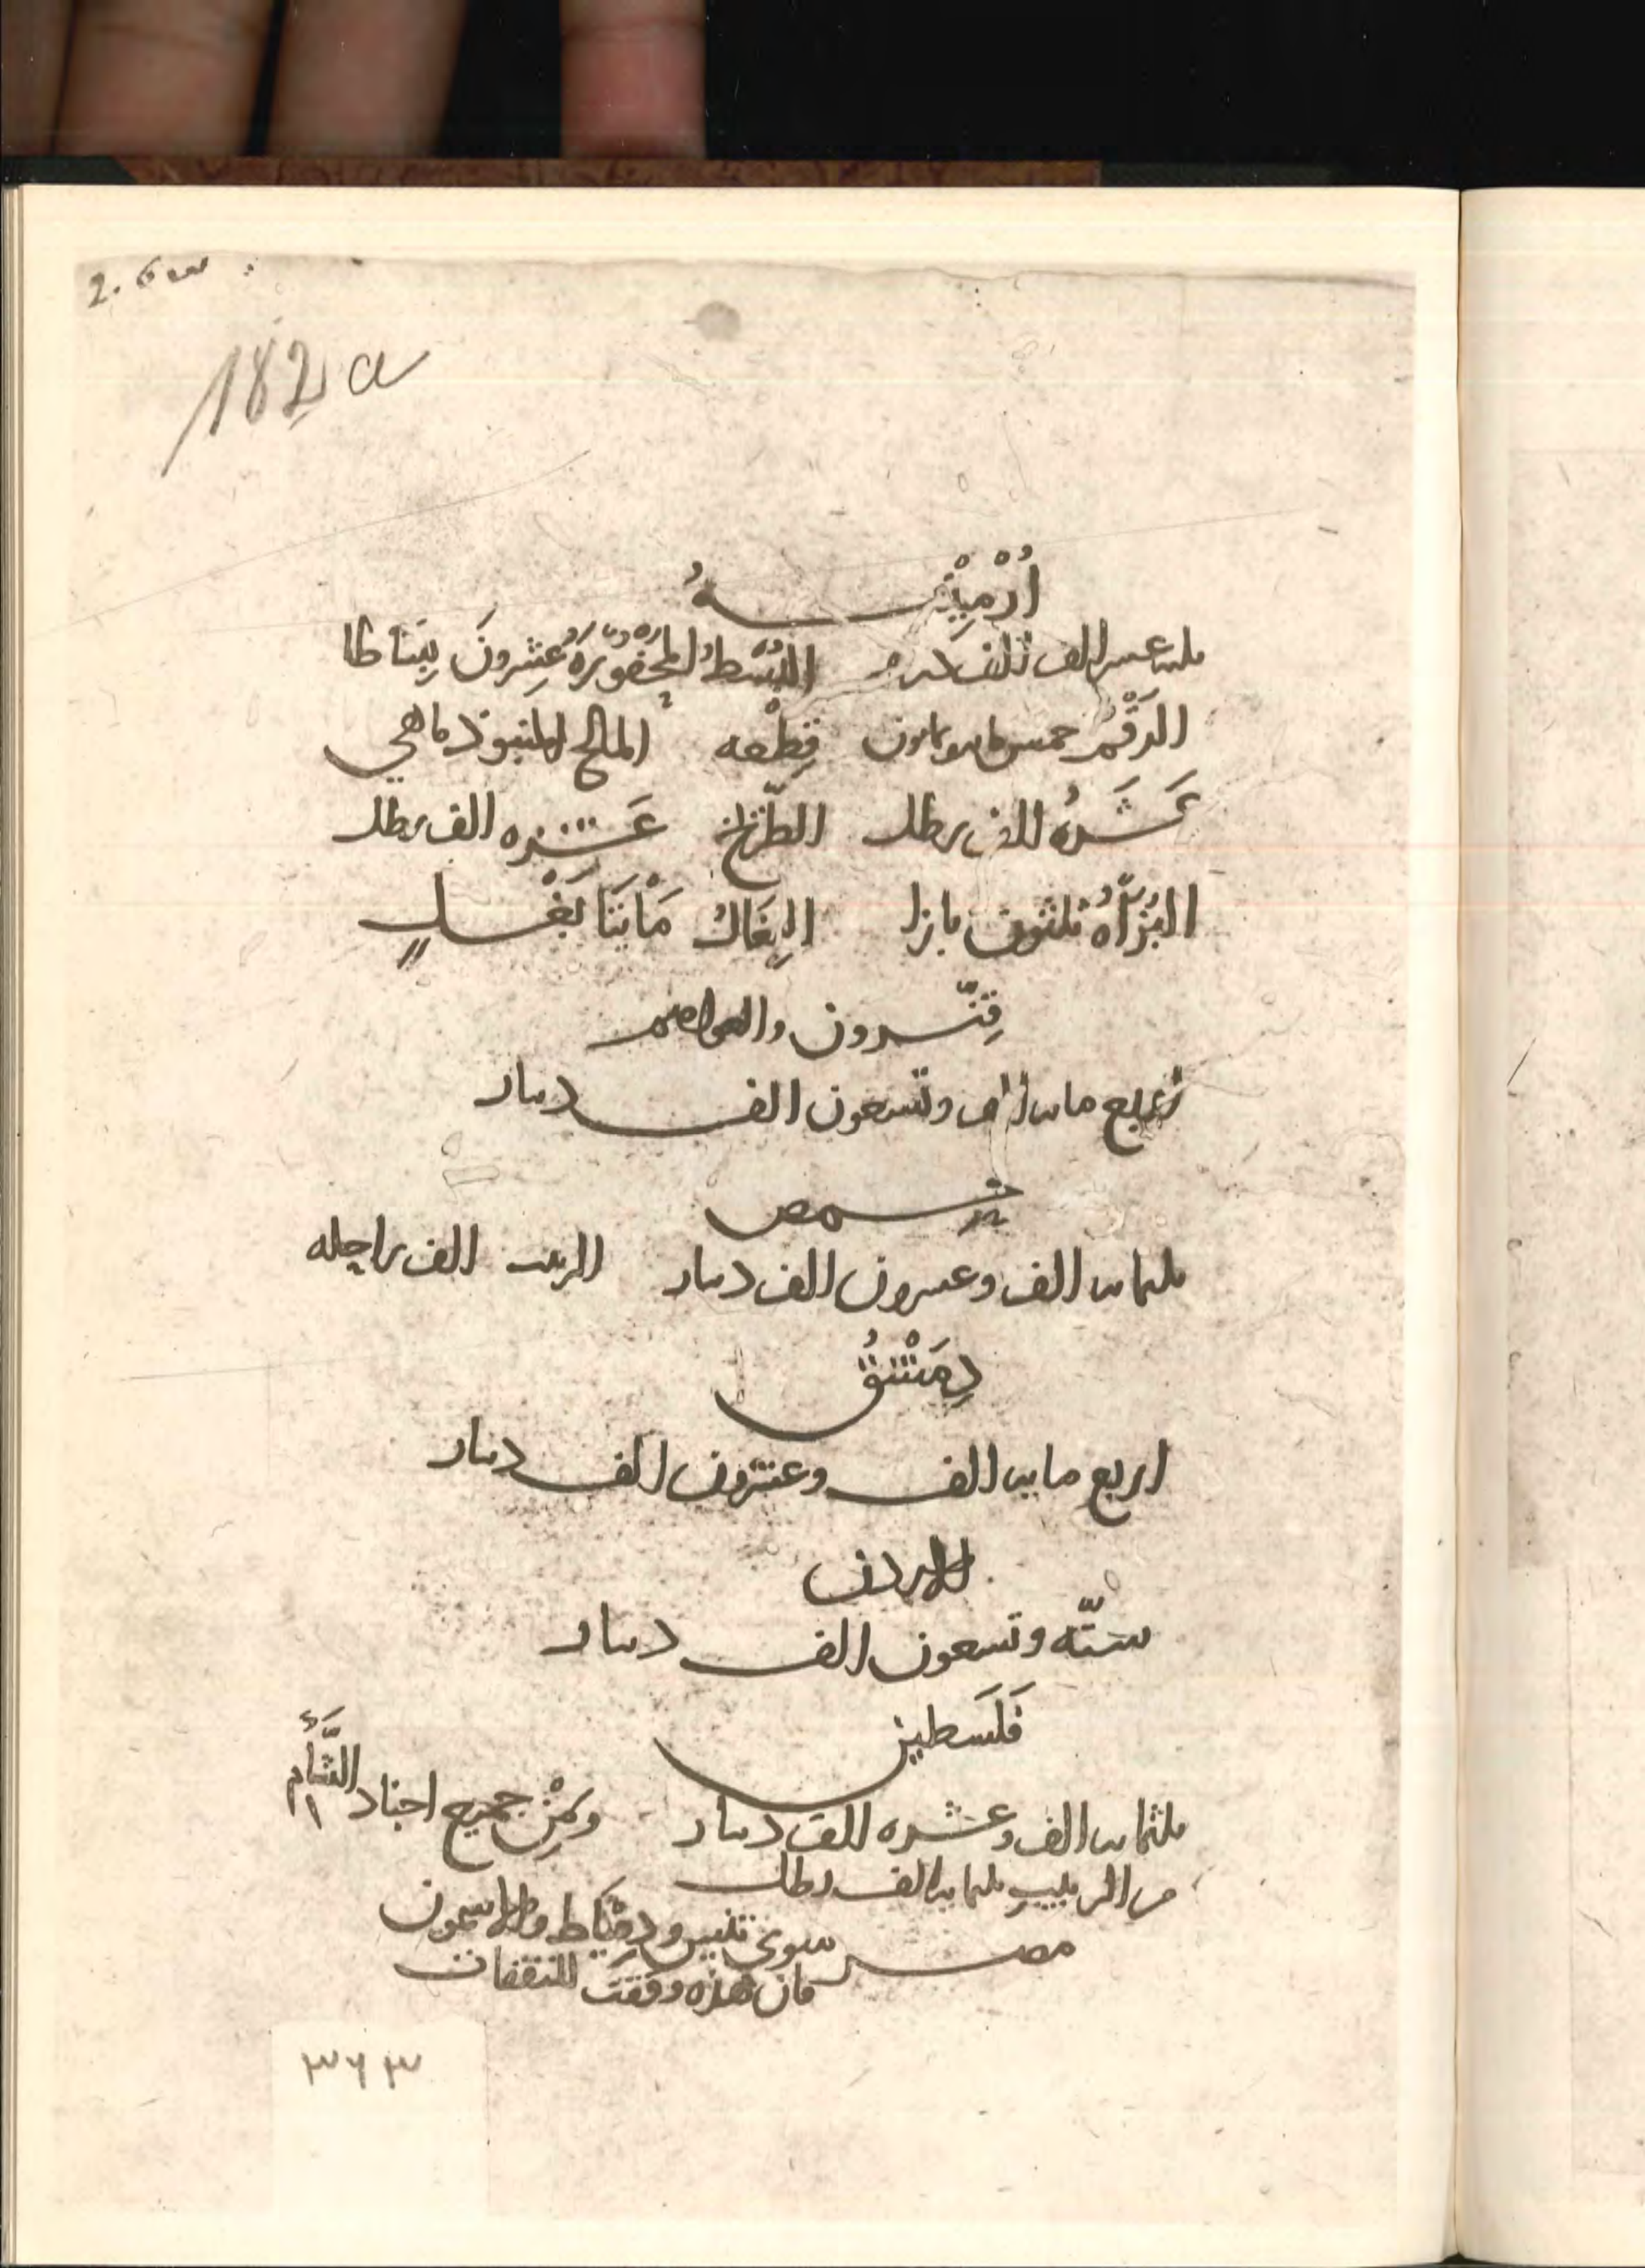 182 a
أُرْمِيْنِيَهُ
ثلثه عشر الف الف درهم البُسْطُ المَحْفُوْرِيَّةُ عِشرونَ بِسَاطا
الرَقْمُ خمس مايه وثمانون قِطْعه المالح السور ماهي
عَشَرَهُ الف رطل الطَّرِّيخُ عَشَره الف رطل
البُزَاهُ ثلثون بازيا البِغَالُ مَأْيَتَا بَغْلٍ
قِنّسرون والعواصم
اربع مايه الف وتسعون الف دينار
حمص
ثلثمايه الف وعشرون الف دينار الزيت الف راحله
دِمَشْقُ
اربع مايه الف وعشرون الف دينار
الاردن
ستّه وتسعون الف دينار
فَلَسطين
ثلثمايه الف وعشره الف دينار ومِنْ جميع اجناد الشَّأم
من الزبيب ثلثمايه الف رطل
مصر سوى تنيس ودِمْيَاط والاشمون
فان هذه وقفت للنفقات
٣٦٣